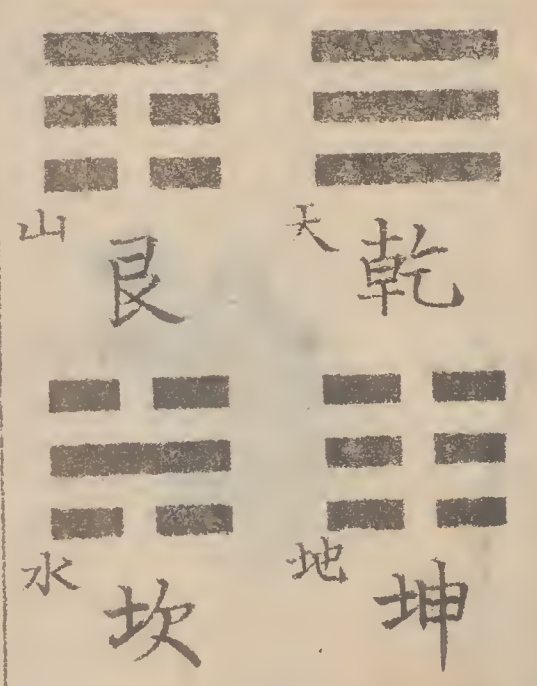 天
乾
地
坤
山
艮
水
坎